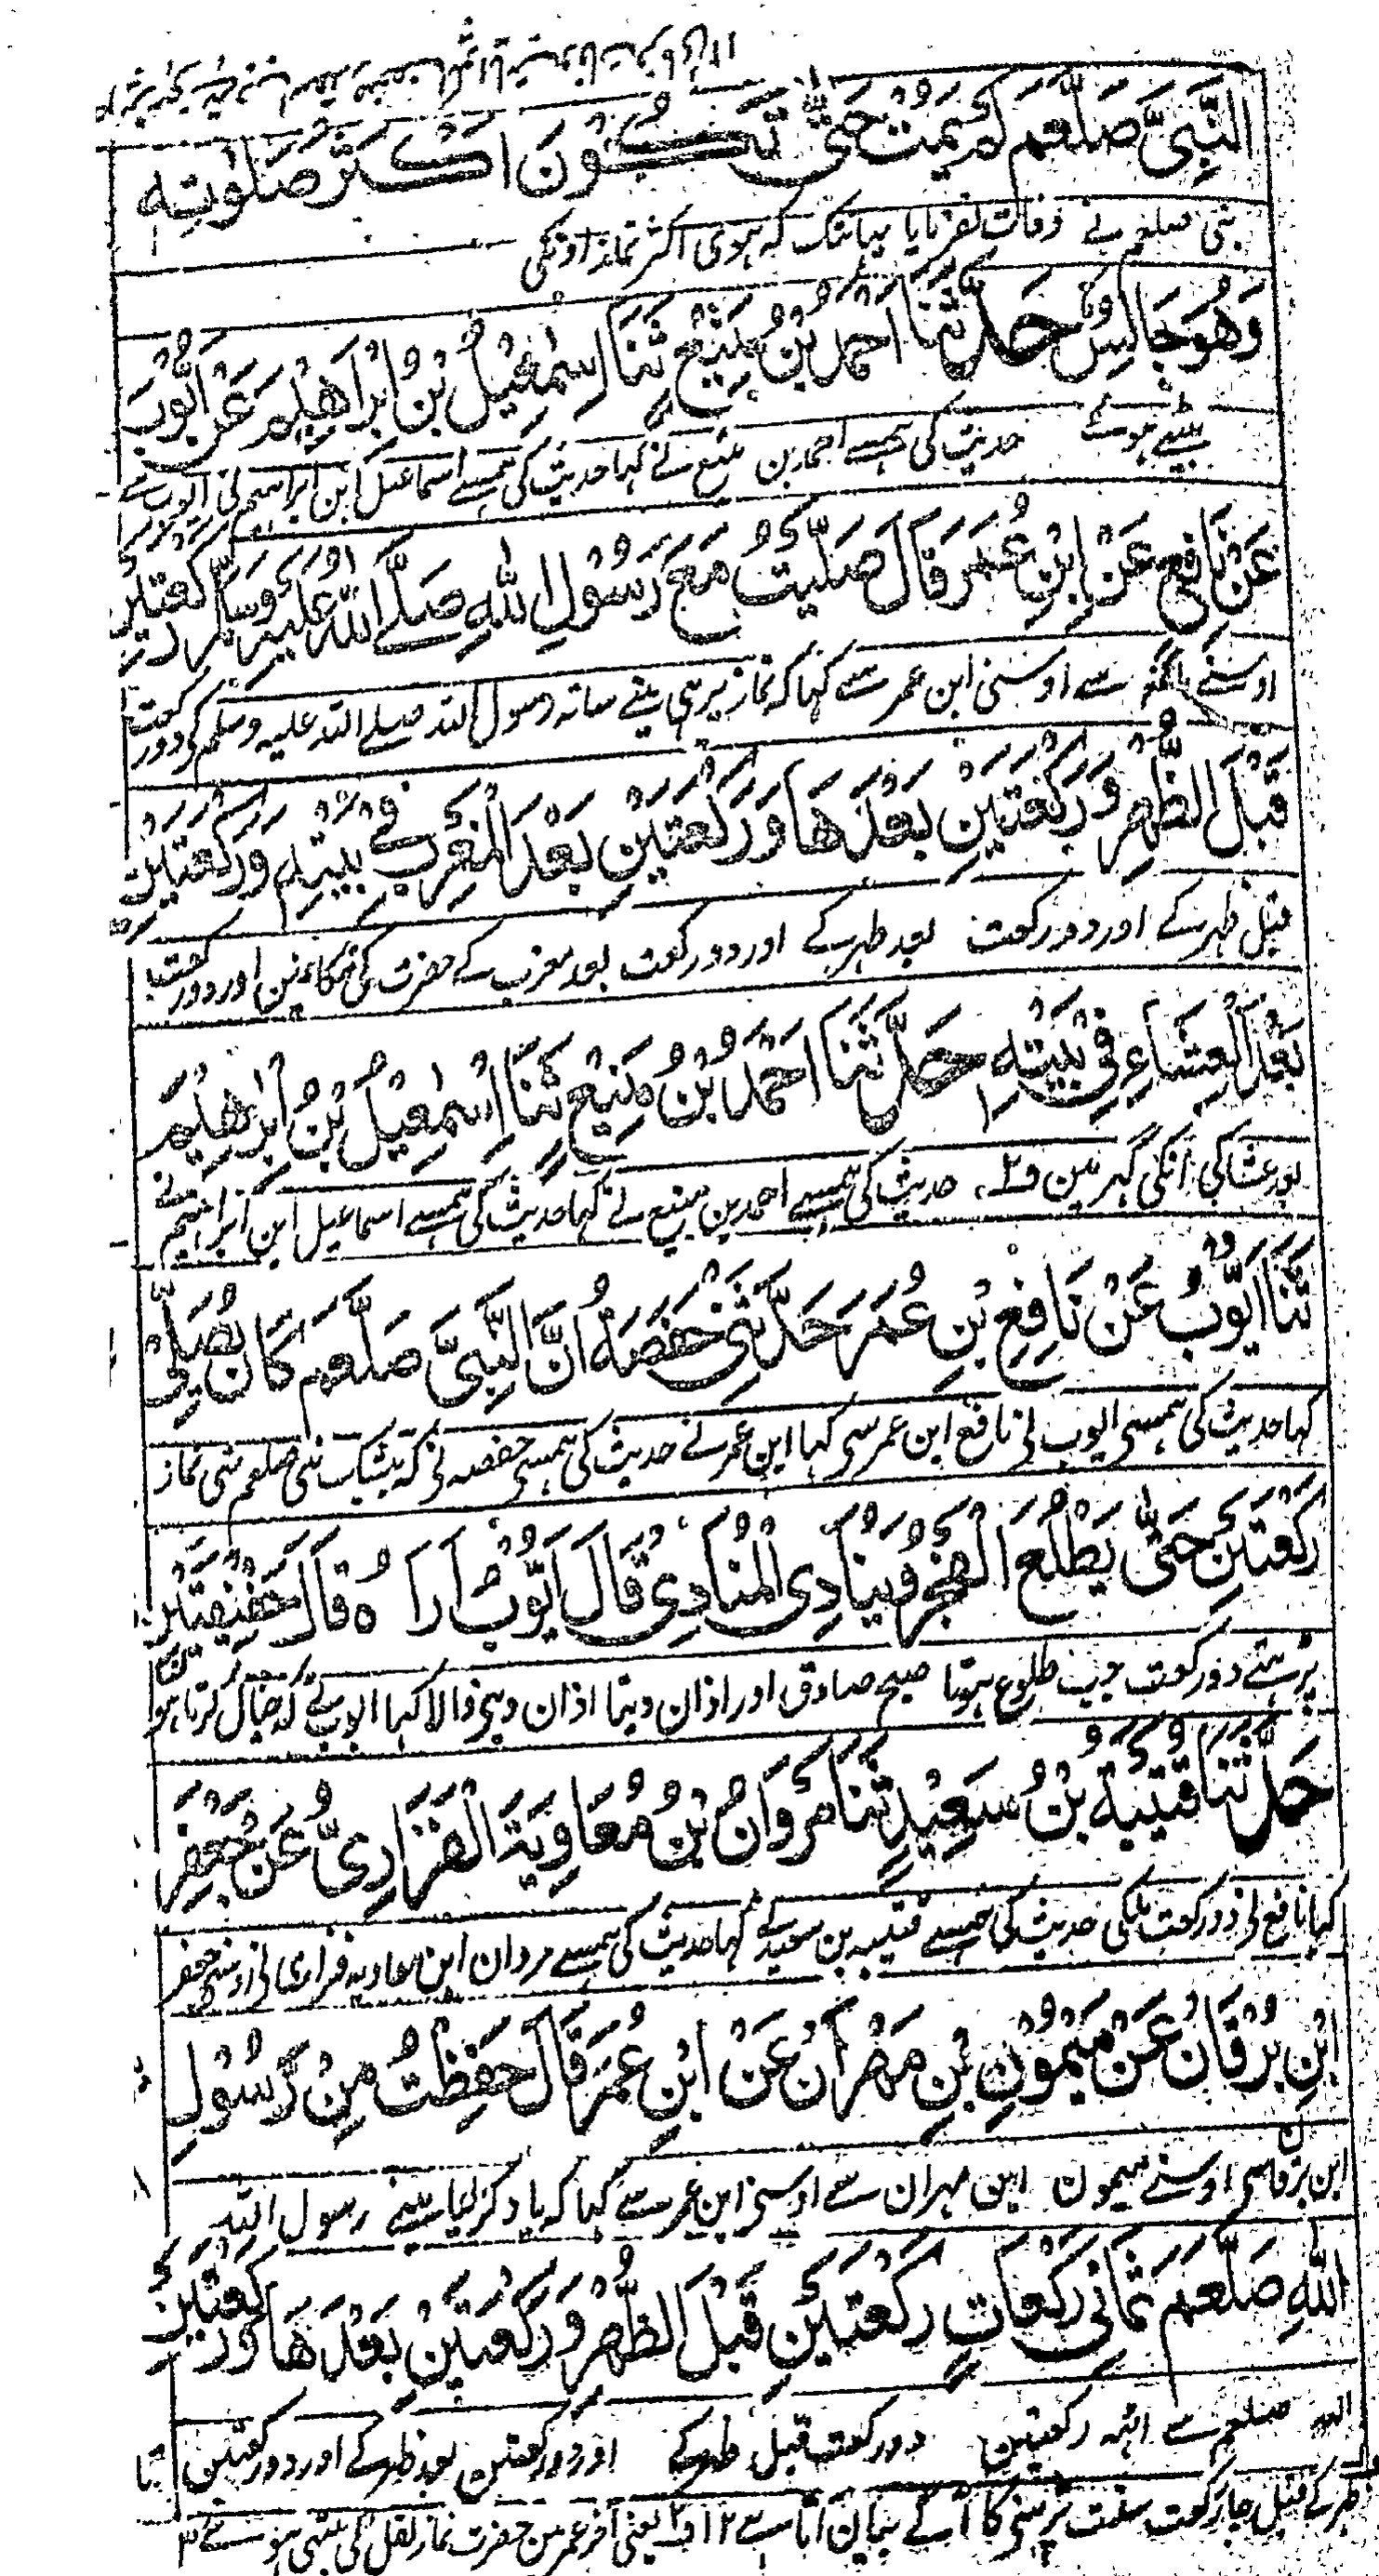 النَّبِیَّ صَلَّعَم لَمْ یَمُتْ حَتّٰی تَکُوْنَ اَکْثَرُ صَلٰوتِهٖ
نبی صلعم نے وفات نفرمایا یہانتک کہ ہوی اکثر نماز اونکی
وَهُوَ جَالِسٌ حَدَّثَنَا اَحْمَدُ بْنُ مَنِیْعٍ ثَنَا اِسْمٰعِیْلُ بْنُ اِبْرَاهِیْمَ عَنْ اَیُّوْبَ
بیٹھے ہوئے حدیث کی ہمسے احمد بن منیع نے کہا حدیث کی ہمسے اسماعیل ابن ابراہیم نی ایوب سے
عَنْ نَافِعٍ عَنْ اِبْنِ عُمَرَ قَالَ صَلَّیْتُ مَعَ رَسُوْلِ اللّٰهِ صَلَّے اللّٰهُ عَلَیْهِ وَسَلَّمَ رَکْعَتَیْنِ
اوسنے سے اوسنی ابن عمر سے کہا کہ نماز پڑہی مینے ساتہ رسول اللہ صلے اللہ علیہ وسلم کی دو رکعت
قَبْلَ الظُّهْرِ وَرَکْعَتَیْنِ بَعْدَهَا وَرَکْعَتَیْنِ بَعْدَ الْمَغْرِبِ فِیْ بَیْتِهٖ وَرَکْعَتَیْنِ
قبل ظہر کے اور دو رکعت بعد ظہر کے اور دو رکعت بعد مغرب کے حضرت کی مکانمین اور دو رکعت
بَعْدَ الْعِشَاءِ فِیْ بَیْتِهٖ حَدَّثَنَا اَحْمَدُ بْنُ مَنِیْعٍ ثَنَا اِسْمٰعِیْلُ بْنُ اِبْرٰهِیْمَ
بعد عشا کی انکی گہر مین ف۲ حدیث کی ہمسے احمد بن منیع نے کہا حدیث کی ہمسے اسماعیل ابن ابراہیم نے
ثَنَا اَیُّوْبُ عَنْ نَافِعِ بْنِ عُمَرَ حَدَّثَتْنِیْ حَفْصَةُ اَنَّ النَّبِیَّ صَلَّعَم کَانَ یُصَلِّیْ
کہا حدیث کی ہمسی ایوب نی نافع ابن عمر سی کہا ابن عمر نے حدیث کی ہمسی حفصہ نی کہ بیشک نبی صلعم تہی نماز
رَکْعَتَیْنِ حَتّٰی یَطْلُعَ الْفَجْرُ وَیُنَادِی الْمُنَادِیْ قَالَ اَیُّوْبُ اَرَاهُ قَالَ خَفِیْفَتَیْنِ
پڑہتے دو رکعت جب طلوع ہوتا صبح صادق اور اذان دیتا اذان دینی والا کہا ایوب نے کہ خیال کرتا ہو
حَدَّثَنَا قُتَیْبَةُ بْنُ سَعِیْدٍ ثَنَا مَرْوَانُ بْنُ مُعَاوِیَةَ الْفَزَارِیُّ عَنْ جَعْفَرِ
کہا نافع نی دو رکعت ہلکی حدیث کی ہمسے قتیبہ بن سعید نے کہا حدیث کی ہمسے مروان ابن معاویہ فزاری نی اوسنی جعفر
ابْنِ بُرْقَانَ عَنْ مَیْمُوْنِ بْنِ مِهْرَانَ عَنْ ابْنِ عُمَرَ قَالَ حَفِظْتُ مِنْ رَسُوْلِ
ابن برقان سی اوسنے میمون ابن مہران سے اوسنی ابن عمر سے کہا کہ یاد کر لیا مینے رسول اللہ
اللّٰهِ صَلَّعَم ثَمَانِیَ رَکَعَاتٍ رَکْعَتَیْنِ قَبْلَ الظُّهْرِ وَرَکْعَتَیْنِ بَعْدَهَا وَرَکْعَتَیْنِ
اللہ صلعم سے اٹہہ رکعتین دو رکعت قبل ظہر کے اور دو رکعتین بعد ظہر کے اور دو رکعتین
ظہر کے قبل چار رکعت سنت پڑہنی کا آگے بیان آتا ہے ۱۲ ف۱ یعنی آخر عمر مین حضرت نماز نفل کی بیٹہی ہوئے